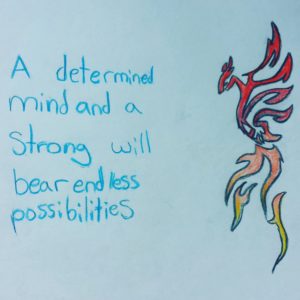 A determined
mind and a
Strong will
bear endless
possibilities